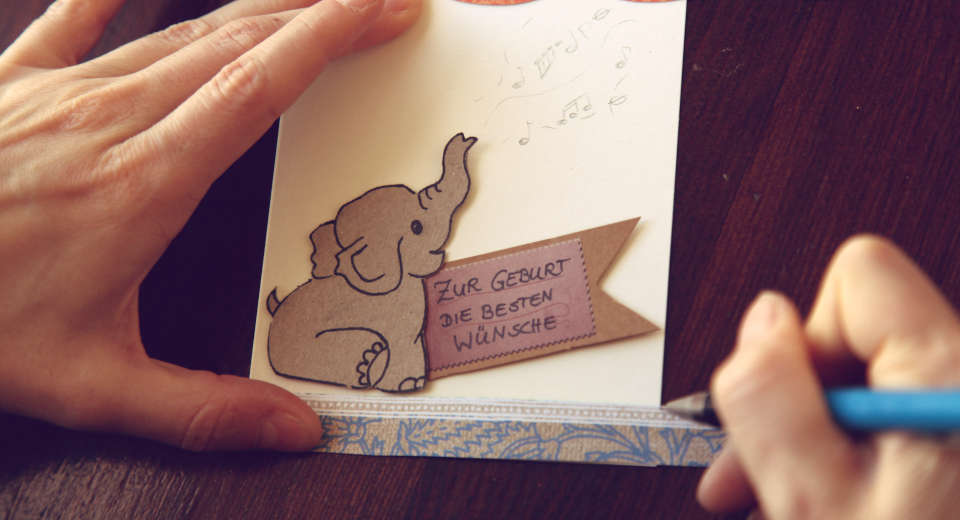 ZUR GEBURT
DIE BESTEN
WÜNSCHE